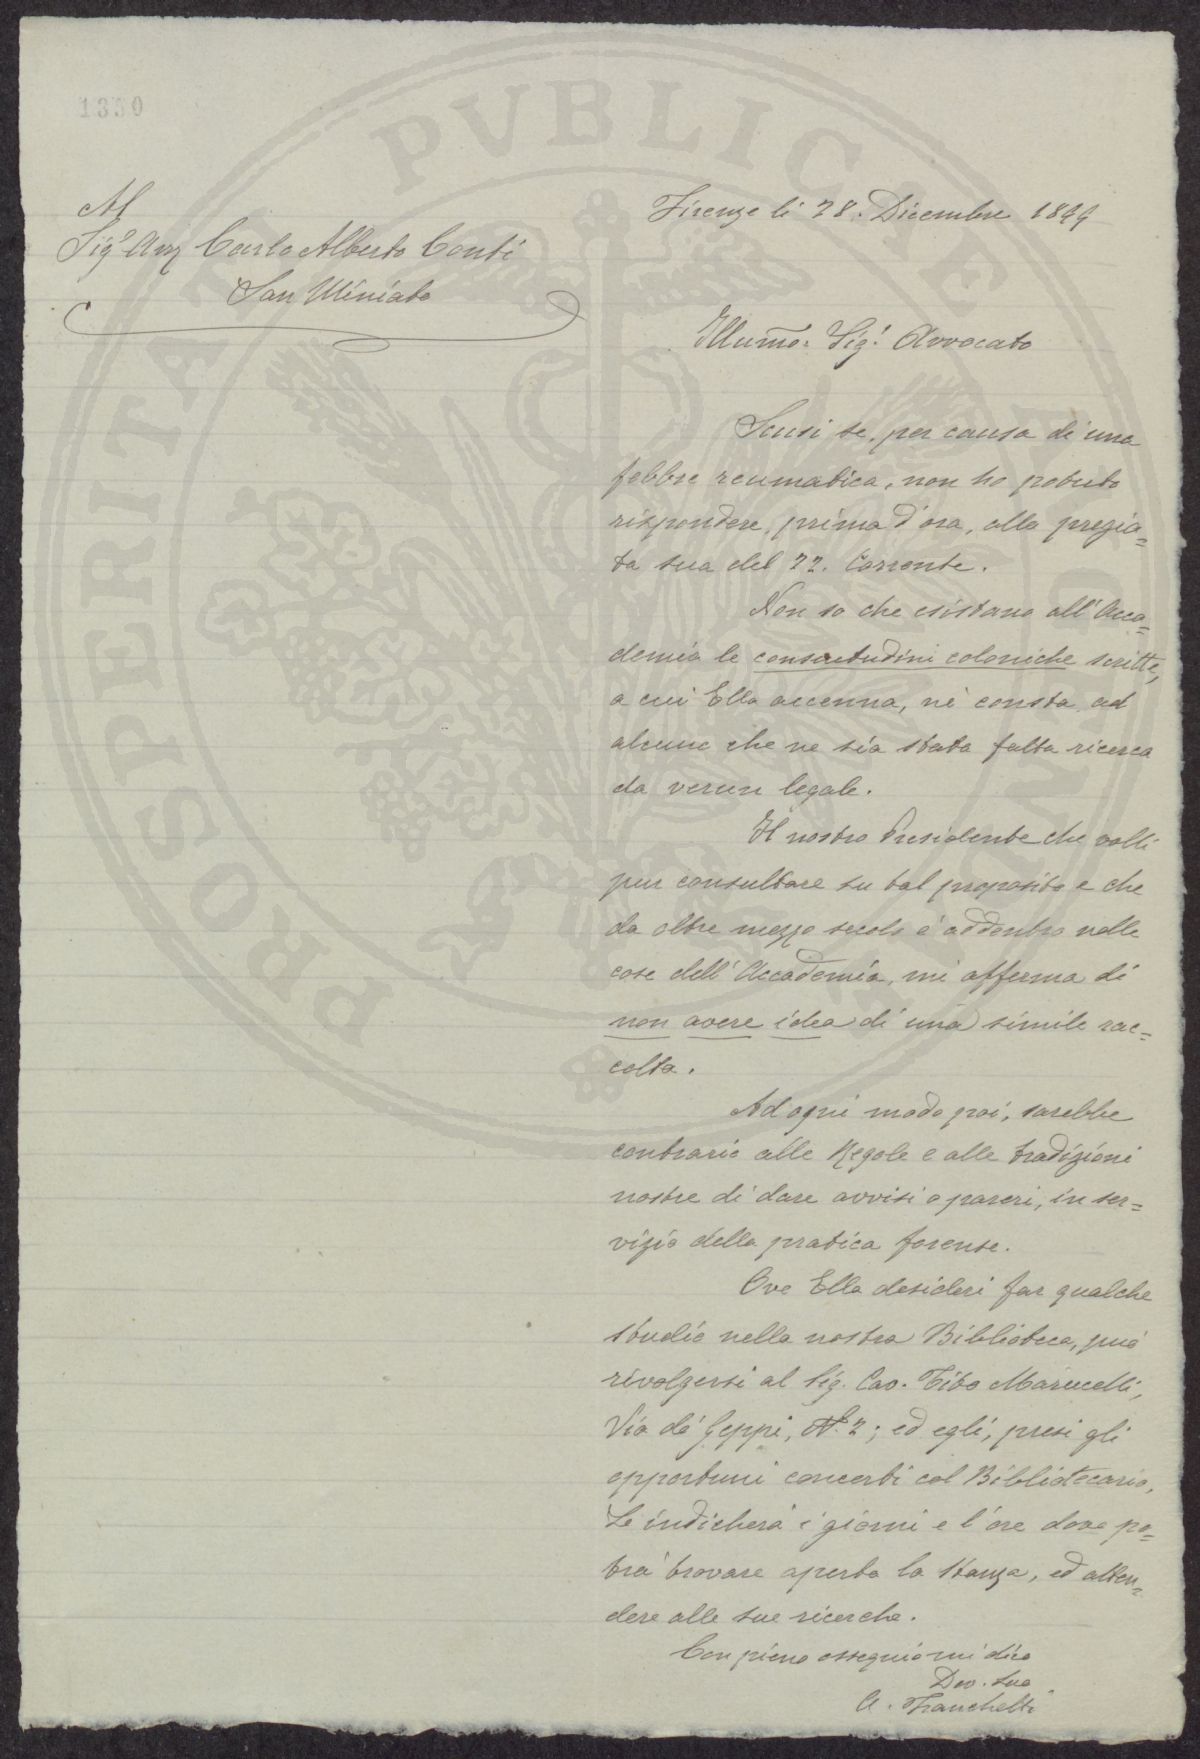 1330
Al
Sigr Avv Carlo Alberto Conti
San Miniato
Firenze li 28. Dicembre 1899
Illumo. Sigr Avvocato
Scusi se, per causa di una
febbre reumatica, non ho potuto
rispondere, prima d'ora, alla pregia=
ta sua del 22. Corrente.
Non so che esistano all'Acca=
demia le consuetudini coloniche scritte,
a cui Ella accenna, nè consta ad
alcuno che ne sia stata fatta ricerca
da verun legale.
Il nostro Presidente che volli
pur consultare su tal proposito e che
da oltre mezzo secolo è addentro nelle
cose dell'Accademia, mi afferma di
non avere idea di una simile rac=
colta.
Ad ogni modo poi, sarebbe
contrario alle Regole e alle tradizioni
nostre di dare avvisi o pareri, in ser=
vizio della pratica forense.
Ove Ella desideri far qualche
studio nella nostra Biblioteca, può
rivolgersi al Sig. Cav. Tito Marucelli,
Via de' Geppi, N. 2; ed egli, presi gli
opportuni concerti col Bibliotecario,
Le indicherà i giorni e l'ore dove po=
trà trovare aperta la Stanza, ed atten=
dere alle sue ricerche.
Con pieno ossequio mi dico
Dev. Suo
A. Franchetti
PROSPERITATI PVBLICAE